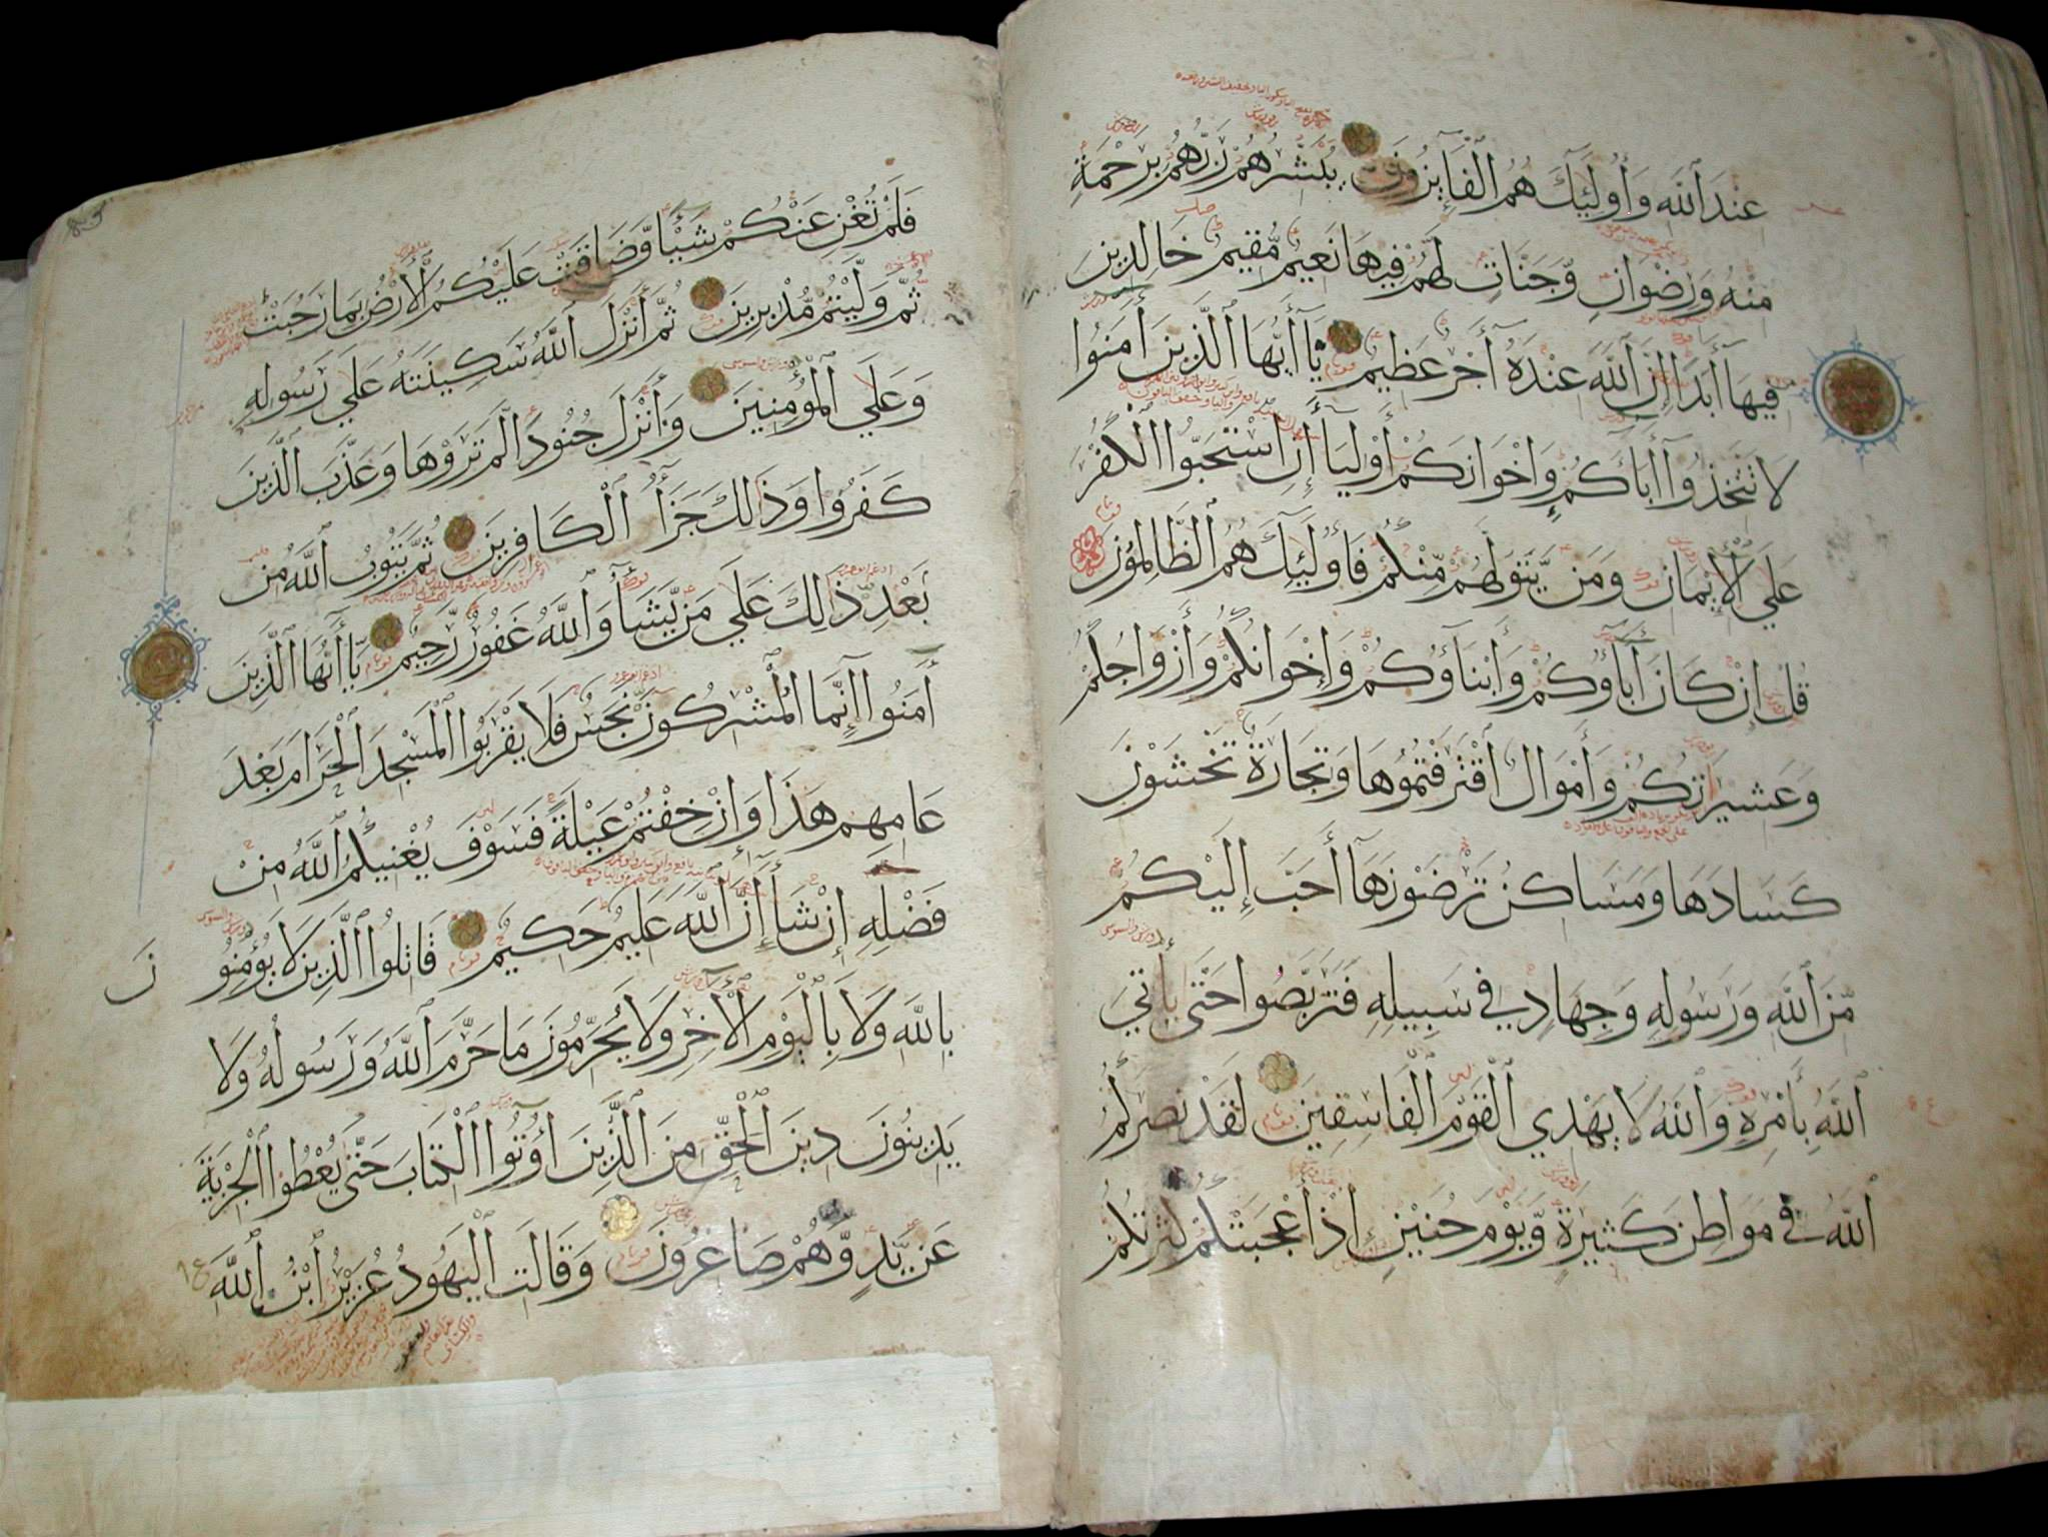 عِنْدَ ٱللَّهِ وَأُولَٰٓئِكَ هُمُ ٱلْفَآئِزُونَ يُبَشِّرُهُمْ رَبُّهُمْ بِرَحْمَةٍ
مِنْهُ وَرِضْوَانٍ وَّجَنَّاتٍ لَهُمْ فِيهَا نَعِيمٌ مُّقِيمٌ خَالِدِينَ
فِيهَآ أَبَدًا إِنَّ ٱللَّهَ عِنْدَهُ أَجْرٌ عَظِيمٌ يَآ أَيُّهَا ٱلَّذِينَ آمَنُوا
لَا تَتَّخِذُوٓا آبَآءَكُمْ وَإِخْوَانَكُمْ أَوْلِيَآءَ إِنِ اسْتَحَبُّوا ٱلْكُفْرَ
عَلَى ٱلْإِيمَانِ وَمَنْ يَّتَوَلَّهُمْ مِّنْكُمْ فَأُولَٰٓئِكَ هُمُ ٱلظَّالِمُونَ
قُلْ إِنْ كَانَ آبَآؤُكُمْ وَأَبْنَآؤُكُمْ وَإِخْوَانُكُمْ وَأَزْوَاجُكُمْ
وَعَشِيرَتُكُمْ وَأَمْوَالٌ ٱقْتَرَفْتُمُوهَا وَتِجَارَةٌ تَخْشَوْنَ
كَسَادَهَا وَمَسَاكِنُ تَرْضَوْنَهَآ أَحَبَّ إِلَيْكُمْ
مِّنَ ٱللَّهِ وَرَسُولِهِ وَجِهَادٍ فِي سَبِيلِهِ فَتَرَبَّصُوا حَتَّى يَأْتِيَ
ٱللَّهُ بِأَمْرِهِ وَٱللَّهُ لَا يَهْدِي ٱلْقَوْمَ ٱلْفَاسِقِينَ لَقَدْ نَصَرَكُمُ
ٱللَّهُ فِي مَوَاطِنَ كَثِيرَةٍ وَّيَوْمَ حُنَيْنٍ إِذْ أَعْجَبَتْكُمْ كَثْرَتُكُمْ
فَلَمْ تُغْنِ عَنْكُمْ شَيْئًا وَّضَاقَتْ عَلَيْكُمُ ٱلْأَرْضُ بِمَا رَحُبَتْ
ثُمَّ وَلَّيْتُمْ مُّدْبِرِينَ ثُمَّ أَنْزَلَ ٱللَّهُ سَكِينَتَهُ عَلَى رَسُولِهِ
وَعَلَى ٱلْمُؤْمِنِينَ وَأَنْزَلَ جُنُودًا لَّمْ تَرَوْهَا وَعَذَّبَ ٱلَّذِينَ
كَفَرُوا وَذَٰلِكَ جَزَآءُ ٱلْكَافِرِينَ ثُمَّ يَتُوبُ ٱللَّهُ مِنْ
بَعْدِ ذَٰلِكَ عَلَى مَنْ يَّشَآءُ وَٱللَّهُ غَفُورٌ رَّحِيمٌ يَآ أَيُّهَا ٱلَّذِينَ
آمَنُوا إِنَّمَا ٱلْمُشْرِكُونَ نَجَسٌ فَلَا يَقْرَبُوا ٱلْمَسْجِدَ ٱلْحَرَامَ بَعْدَ
عَامِهِمْ هَذَا وَإِنْ خِفْتُمْ عَيْلَةً فَسَوْفَ يُغْنِيكُمُ ٱللَّهُ مِنْ
فَضْلِهِ إِنْ شَآءَ إِنَّ ٱللَّهَ عَلِيمٌ حَكِيمٌ قَاتِلُوا ٱلَّذِينَ لَا يُؤْمِنُونَ
بِاللَّهِ وَلَا بِالْيَوْمِ ٱلْآخِرِ وَلَا يُحَرِّمُونَ مَا حَرَّمَ ٱللَّهُ وَرَسُولُهُ وَلَا
يَدِينُونَ دِينَ ٱلْحَقِّ مِنَ ٱلَّذِينَ أُوتُوا ٱلْكِتَابَ حَتَّى يُعْطُوا ٱلْجِزْيَةَ
عَنْ يَّدٍ وَّهُمْ صَاغِرُونَ وَقَالَتِ ٱلْيَهُودُ عُزَيْرٌ ٱبْنُ ٱللَّهِ